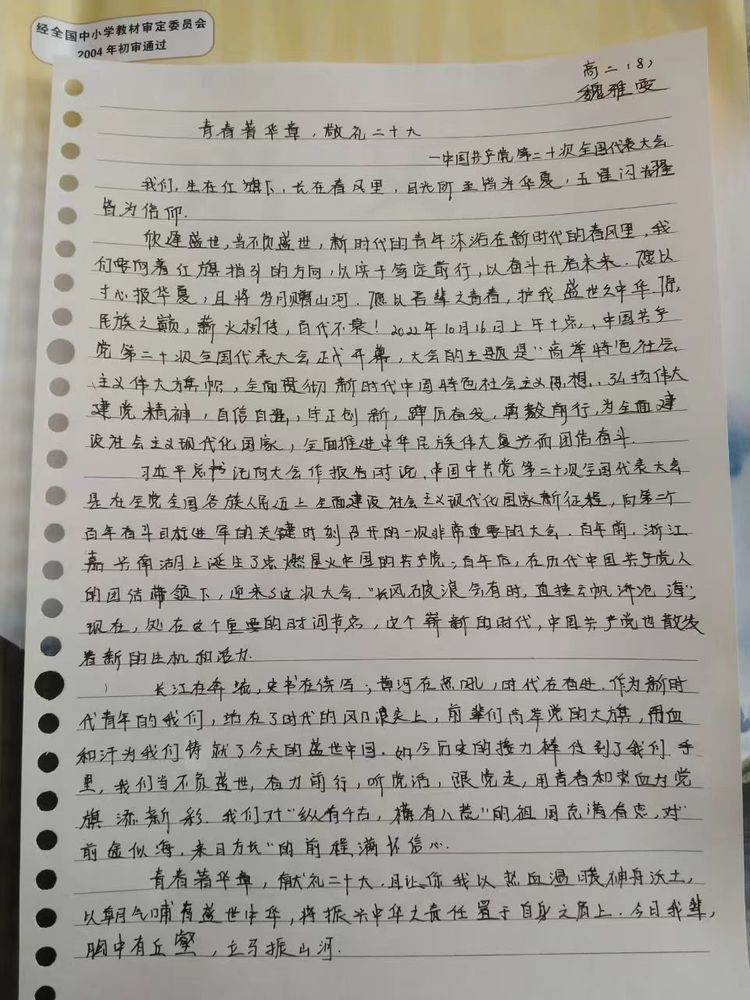 经全国中小学教材审定委员会
2004年初审通过
高二(8)
魏雅雯
青春著华章,献礼二十大
—中国共产党第二十次全国代表大会
我们,生在红旗下,长在春风里,目光所至皆为华夏,五星闪耀
皆为信仰.
欣逢盛世,当不负盛世,新时代的青年沐浴在新时代的春风里,我
们要向着红旗指引的方向,以实干笃定前行,以奋斗开启未来.愿以
寸心报华夏,且将岁月赠山河.愿以吾辈之青春,护我盛世之中华.
民族之巅,薪火相传,百代不衰!2022年10月16日上午十点,中国共产
党第二十次全国代表大会正式开幕,大会的主题是"高举特色社会
主义伟大旗帜,全面贯彻新时代中国特色社会主义思想,弘扬伟大
建党精神,自信自强,守正创新,踔厉奋发,勇毅前行,为全面建
设社会主义现代化国家,全面推进中华民族伟大复兴而团结奋斗.
习近平总书记向大会作报告时说,中国中共党第二十次全国代表大会
是在全党全国各族人民迈上全面建设社会主义现代化国家新征程,向第二个
百年奋斗目标进军的关键时刻召开的一次非常重要的大会.百年前,浙江
嘉兴南湖上诞生了点燃星火中国的共产党;百年后,在历代中国共产党人
的团结带领下,迎来了这次大会."长风破浪会有时,直挂云帆济沧海",
现在,处在这个重要的时间节点,这个崭新的时代,中国共产党也散发
着新的生机和活力.
长江在奔流,史书在续写;黄河在怒吼,时代在奋进.作为新时
代青年的我们,站在了时代的风口浪尖上,前辈们高举党的大旗,用血
和汗为我们铸就了今天的盛世中国.如今历史的接力棒传到了我们手
里,我们当不负盛世,奋力前行,听党话,跟党走,用青春和热血为党
旗添新彩.我们对"纵有千古,横有八荒"的祖国充满眷恋,对"
前途似海,来日方长"的前程满怀信心.
青春著华章,献礼二十大.且让你我以热血温暖神舟沃土,
以朝气哺育盛世中华,将振兴中华之责任置于自身之肩上.今日我辈,
胸中有丘壑,立马振山河.